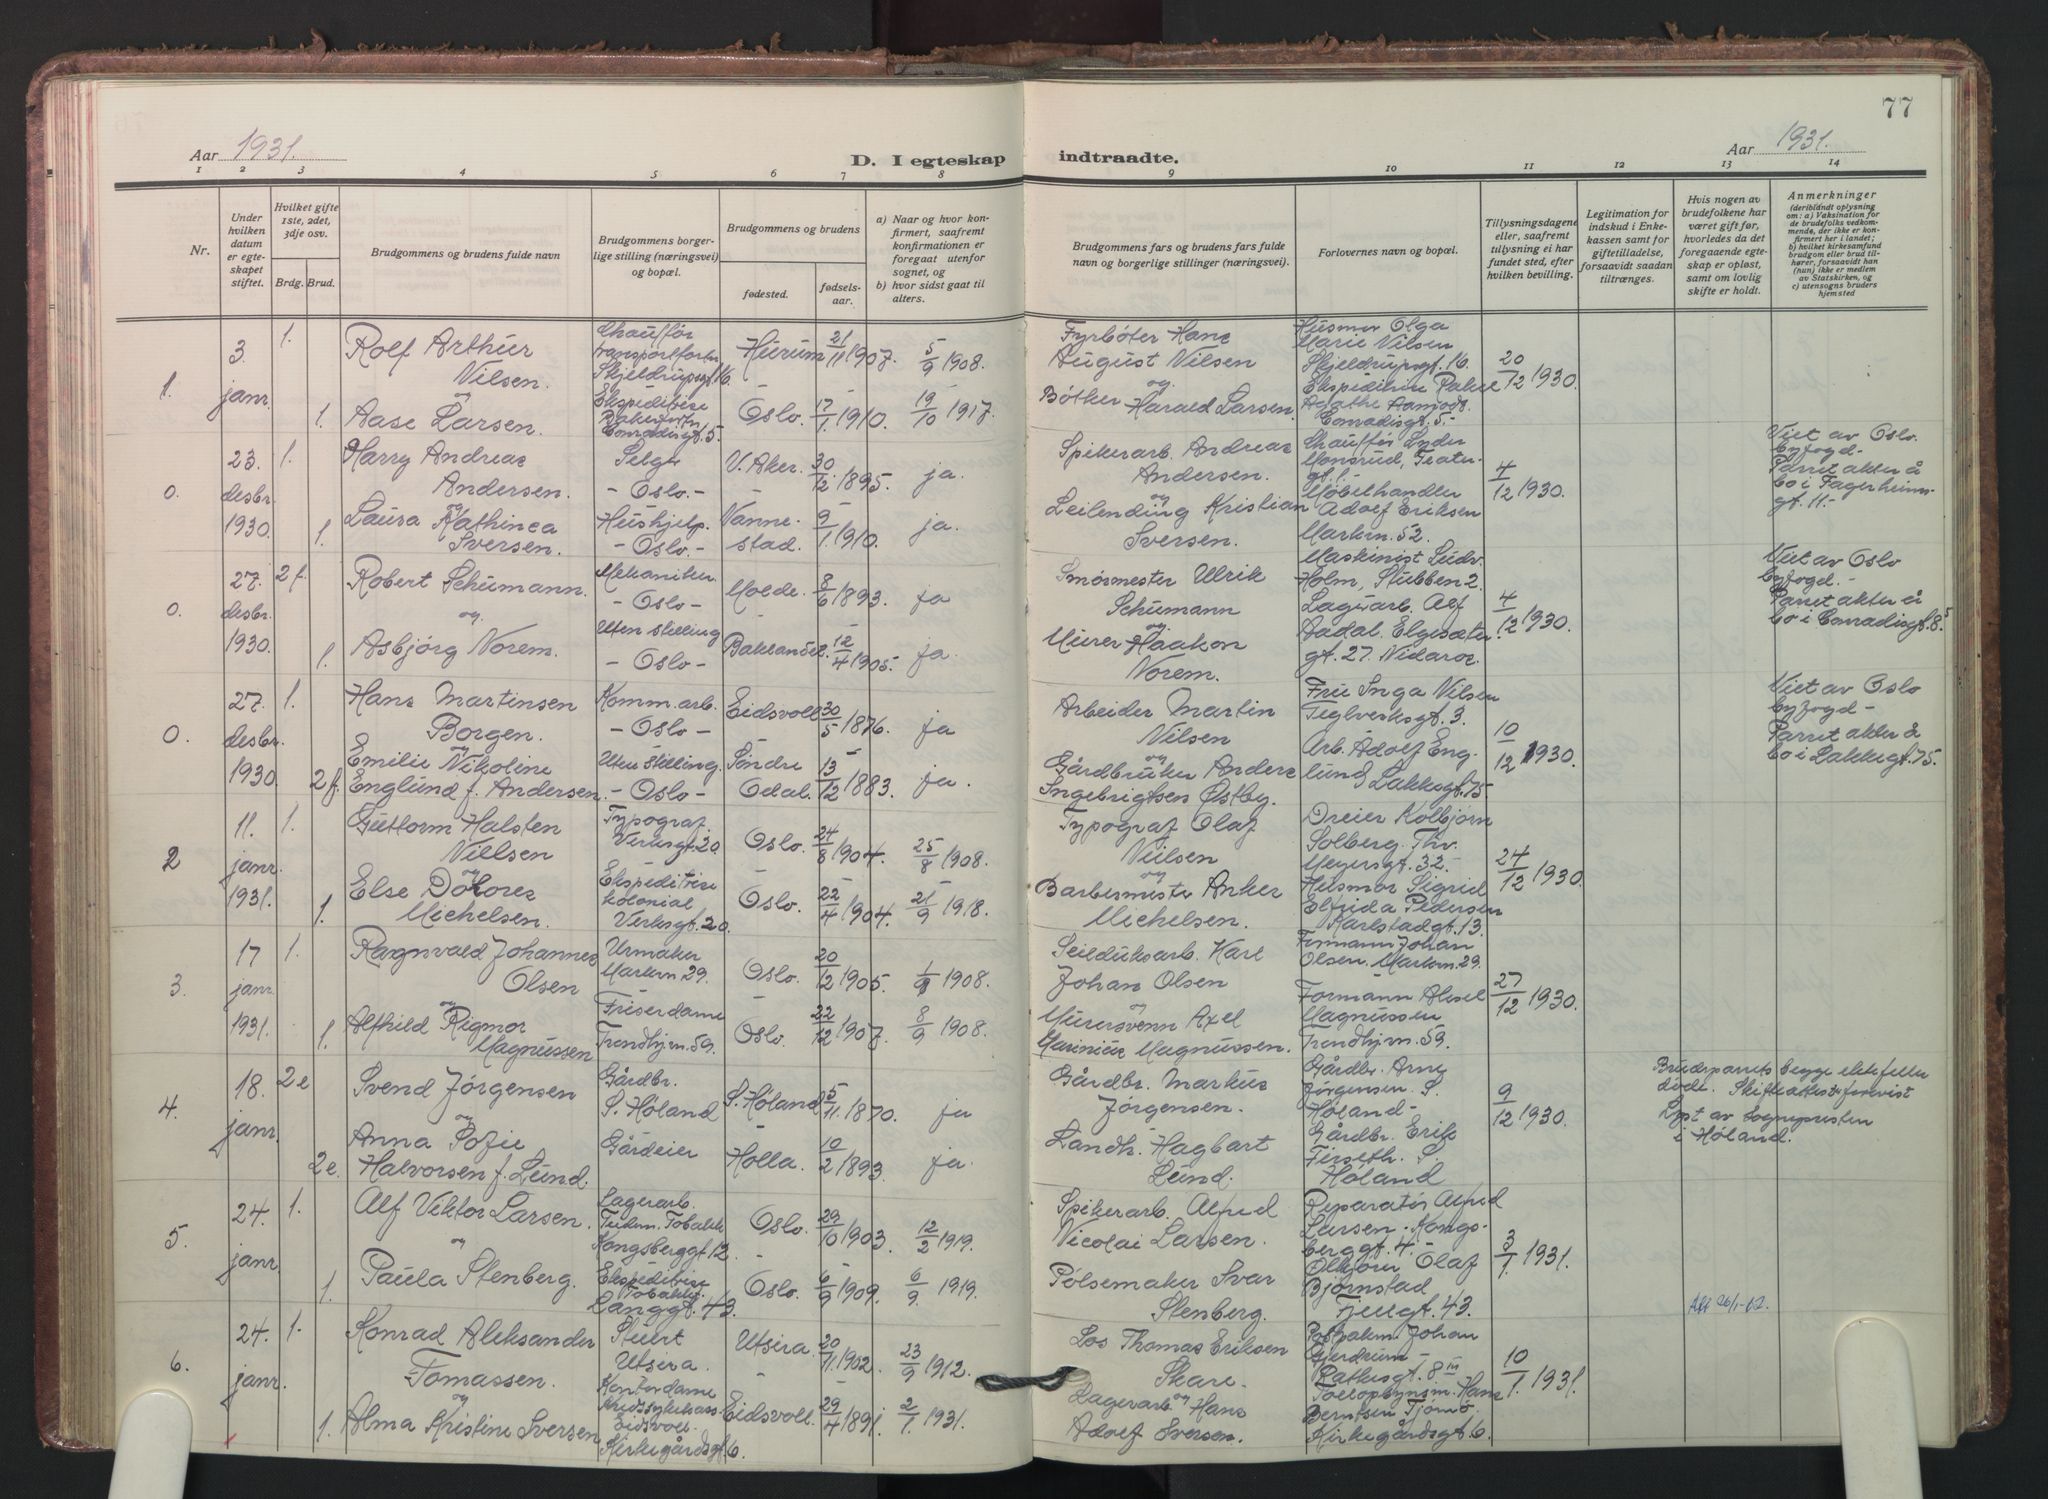 77
Aar 1931.
D. I egteskap
indtraadte.
Aar 1931.
1 2 3 4 5 6 7 8 9 10 11 12 13 14
Nr.
Under hvilken datum er egteskapet stiftet.
Hvilket gifte 1ste, 2det, 3dje osv.
Brdg. Brud.
Brudgommens og brudens fulde navn
Brudgommens borgerlige stilling (næringsvei) og bopæl.
Brudgommens og brudens
fødested.
fødselsaar.
a) Naar og hvor konfirmert, saafremt konfirmationen er foregaat utenfor sognet, og
b) hvor sidst gaat til alters.
Brudgommens fars og brudens fars fulde navn og borgerlige stillinger (næringsvei).
Forlovernes navn og bopæl.
Tillysningsdagene eller, saafremt tillysning ei har fundet sted, efter hvilken bevilling.
Legitimation for indskud i Enkekassen samt for giftetilladelse, forsaavidt saadan tiltrænges.
Hvis nogen av brudefolkene har været gift før, hvorledes da det foregaaende egteskap er opløst, samt om lovlig skifte er holdt.
Anmerkninger (deriblandt oplysning om: a) Vaksination for de brudefolks vedkommende, der ikke er konfirmert her i landet; b) hvilket kirkesamfund brudgom eller brud tilhører, forsaavidt han (hun) ikke er medlem av Statskirken, og c) utensogns bruders hjemsted
1. 3. janr. 1.
Rolf Arthur Nilsen.
Chauffør transportfortn. Skjeldrupsgt. 16.
Hurum 21/11 1907. 5/9 1908.
Fyrbøter Hans August Nilsen
og
Husmor Olga Marie Nilsen Skjeldrupsgt. 16.
20/12 1930.
og
1. Aase Larsen.
Ekspeditrise Conradisgt. 5.
Oslo. 17/1 1910. 19/10 1917.
Bøtker Harald Larsen.
Ekspeditrise Agathe Aamodt. Conradisgt. 5.-
0. 23. desbr. 1930. 1.
Harry Andreas Andersen.
Selger - Oslo.-
V. Aker. 30/12 1895. ja.
Spikerarb. Andreas Andersen.
og
Chauffør Lyder Monsrud, Teatergt. 1.-
4/12 1930.
Viet av Oslo byfogd.- Parret akter å bo i Fagerheimgt. 11.-
og
1. Laura Kathinca Sversen.
Hushjelp. - Oslo.-
Vannestad. 9/1 1910. ja.
Leilending Kristian Sversen.
Møbelhandler Adolf Eriksen Markvn. 52.
0. 27. desbr. 1930. 2 f.
Robert Schumann.
og
Mekaniker. - Oslo -
Molde. 8/6 1893. ja
Smørmester Ulrik Schumann
og
Maskinist Holm, Stubben 2.
4/12 1930.
Viet av Oslo byfogd.- Parret akter å bo i Conradisgt. 8.
1. Asbjørg Norem.
Uten stilling - Oslo -
Baklandet. 12/4 1905. ja.
Murer Haakon Norem.
Lagerarb. Alf Aadal. Elgesætergt. 27. Nidaros.
0. 27. desbr. 1930 1.
Hans Martinsen Borgen.
og
Komm. arb. - Oslo -
Eidsvoll 30/5 1876. ja
Arbeider Martin Nilsen
og
Fru Inga Nilsen Teglverksgt. 3.
10/12 1930.
Viet av Oslo byfogd - Parret akter å bo i Lakkegt. 75.
2 f. Emilie Nikoline Englund f. Andersen.
Uten stilling. - Oslo -
Søndre Odal. 13/12 1883. ja.
Gårdbruker Anders Ingebrigtsen Østby.
Arb. Adolf Englund Lakkegt. 75
2 11. janr. 1931. 1.
Guttorm Halsten Nielsen
og
Typograf Verksgt. 20.
Oslo. 24/8 1904. 25/8 1908.
Typograf Olaf Nielsen
og
Dreier Kolbjørn Solberg. Thv. Meyersgt. 32.-
24/12 1930.
1. Else Dolores Michelsen.
Ekspeditrise kolonial Verksgt. 20.
Oslo. 22/4 1904. 21/9 1918.
Barbermester Anker Michelsen.
Husmor Sigrid Elfrida Pedersen Karlstadgt. 13.
3. 17 janr. 1931. 1.
Ragnvald Johannes Olsen
og
Urmaker Markvn. 29.
Oslo. 20/12 1905. 1908.
Seilduksarb. Karl Johan Olsen
og
Formann Johan Olsen. Markvn. 29.
27/12 1930.
1. Alfhild Rigmor Magnussen
Friserdame Trondhjvn. 59.
Oslo. 22/12 1907. 8/9 1908.
Murersvenn Axel Marinius Magnussen.
Formann Aksel Magnussen Trondhjvn. 59.
4. 18. janr. 2 e
Svend Jørgensen
og
Gårdbr. S. Høland
S. Høland 5/11 1870. ja
Gårdbr. Markus Jørgensen.
Gårdbr. Arne Jørgensen. S. Høland -
9/12 1930.
Brudeparrets begge ektefeller døde. Skifteattester forevist
Lyst av sognepresten i Høland.
2 e. Anna Sofie Halvorsen f. Lund.
Gårdeier
Holla. 10/2 1893. ja.
Landh. Hagbart Lund.
Gårdbr. Erik Firseth. S. Høland
5. 24. janr. 1.
Alf Viktor Larsen.
og
Lagerarb. Tidem. Tobakk Kongsberggt. 12.
Oslo. 29/10 1903. 12/2 1919.
Spikerarb. Alfred Nicolai Larsen.
Reparatør Alfred Larsen - Kongsberggt. 4.-
3/1 1931.
1. Paula Stenberg.
Ekspeditrise Tobakkf. Langgt. 43.
Oslo. 6/9 1909. 6/9 1919.
Pølsemaker Ivar Stenberg.
Olaf Bjørnstad Fjellgt. 43.
6. 24. janr. 1.
Konrad Aleksander Tomassen.
og
Stuert Utsira.
Utsira. 20/11 1902. 23/9 1912.
Los Thomas Eriksen Skare.
og
Postpakm. Johan Gjerdrum - Rathkesgt. 8 III
10/1 1931.
Att 26/1-62.
1. Alma Kristine Sversen
Kontordame Eidsvoll. Kirkegårdsgt. 6.
Eidsvoll. 29/4 1891. 2/1 1931.
Lagerarb. Hans Adolf Sversen.
Hans Berntsen Tjømø. Kirkegårdsgt. 6.